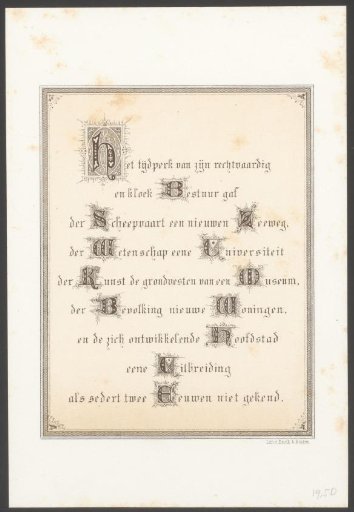 Het tijdperk van zijn rechtvaardig
en kloek Bestuur gaf
der Scheepvaart een nieuwen Zeeweg,
der Wetenschap eene Universiteit
der Kunst de grondvesten van een Museum,
der Bevolking nieuwe Woningen,
en de zich ontwikkelende Hoofdstad
eene Uitbreiding
als sedert twee Eeuwen niet gekend.
19,50